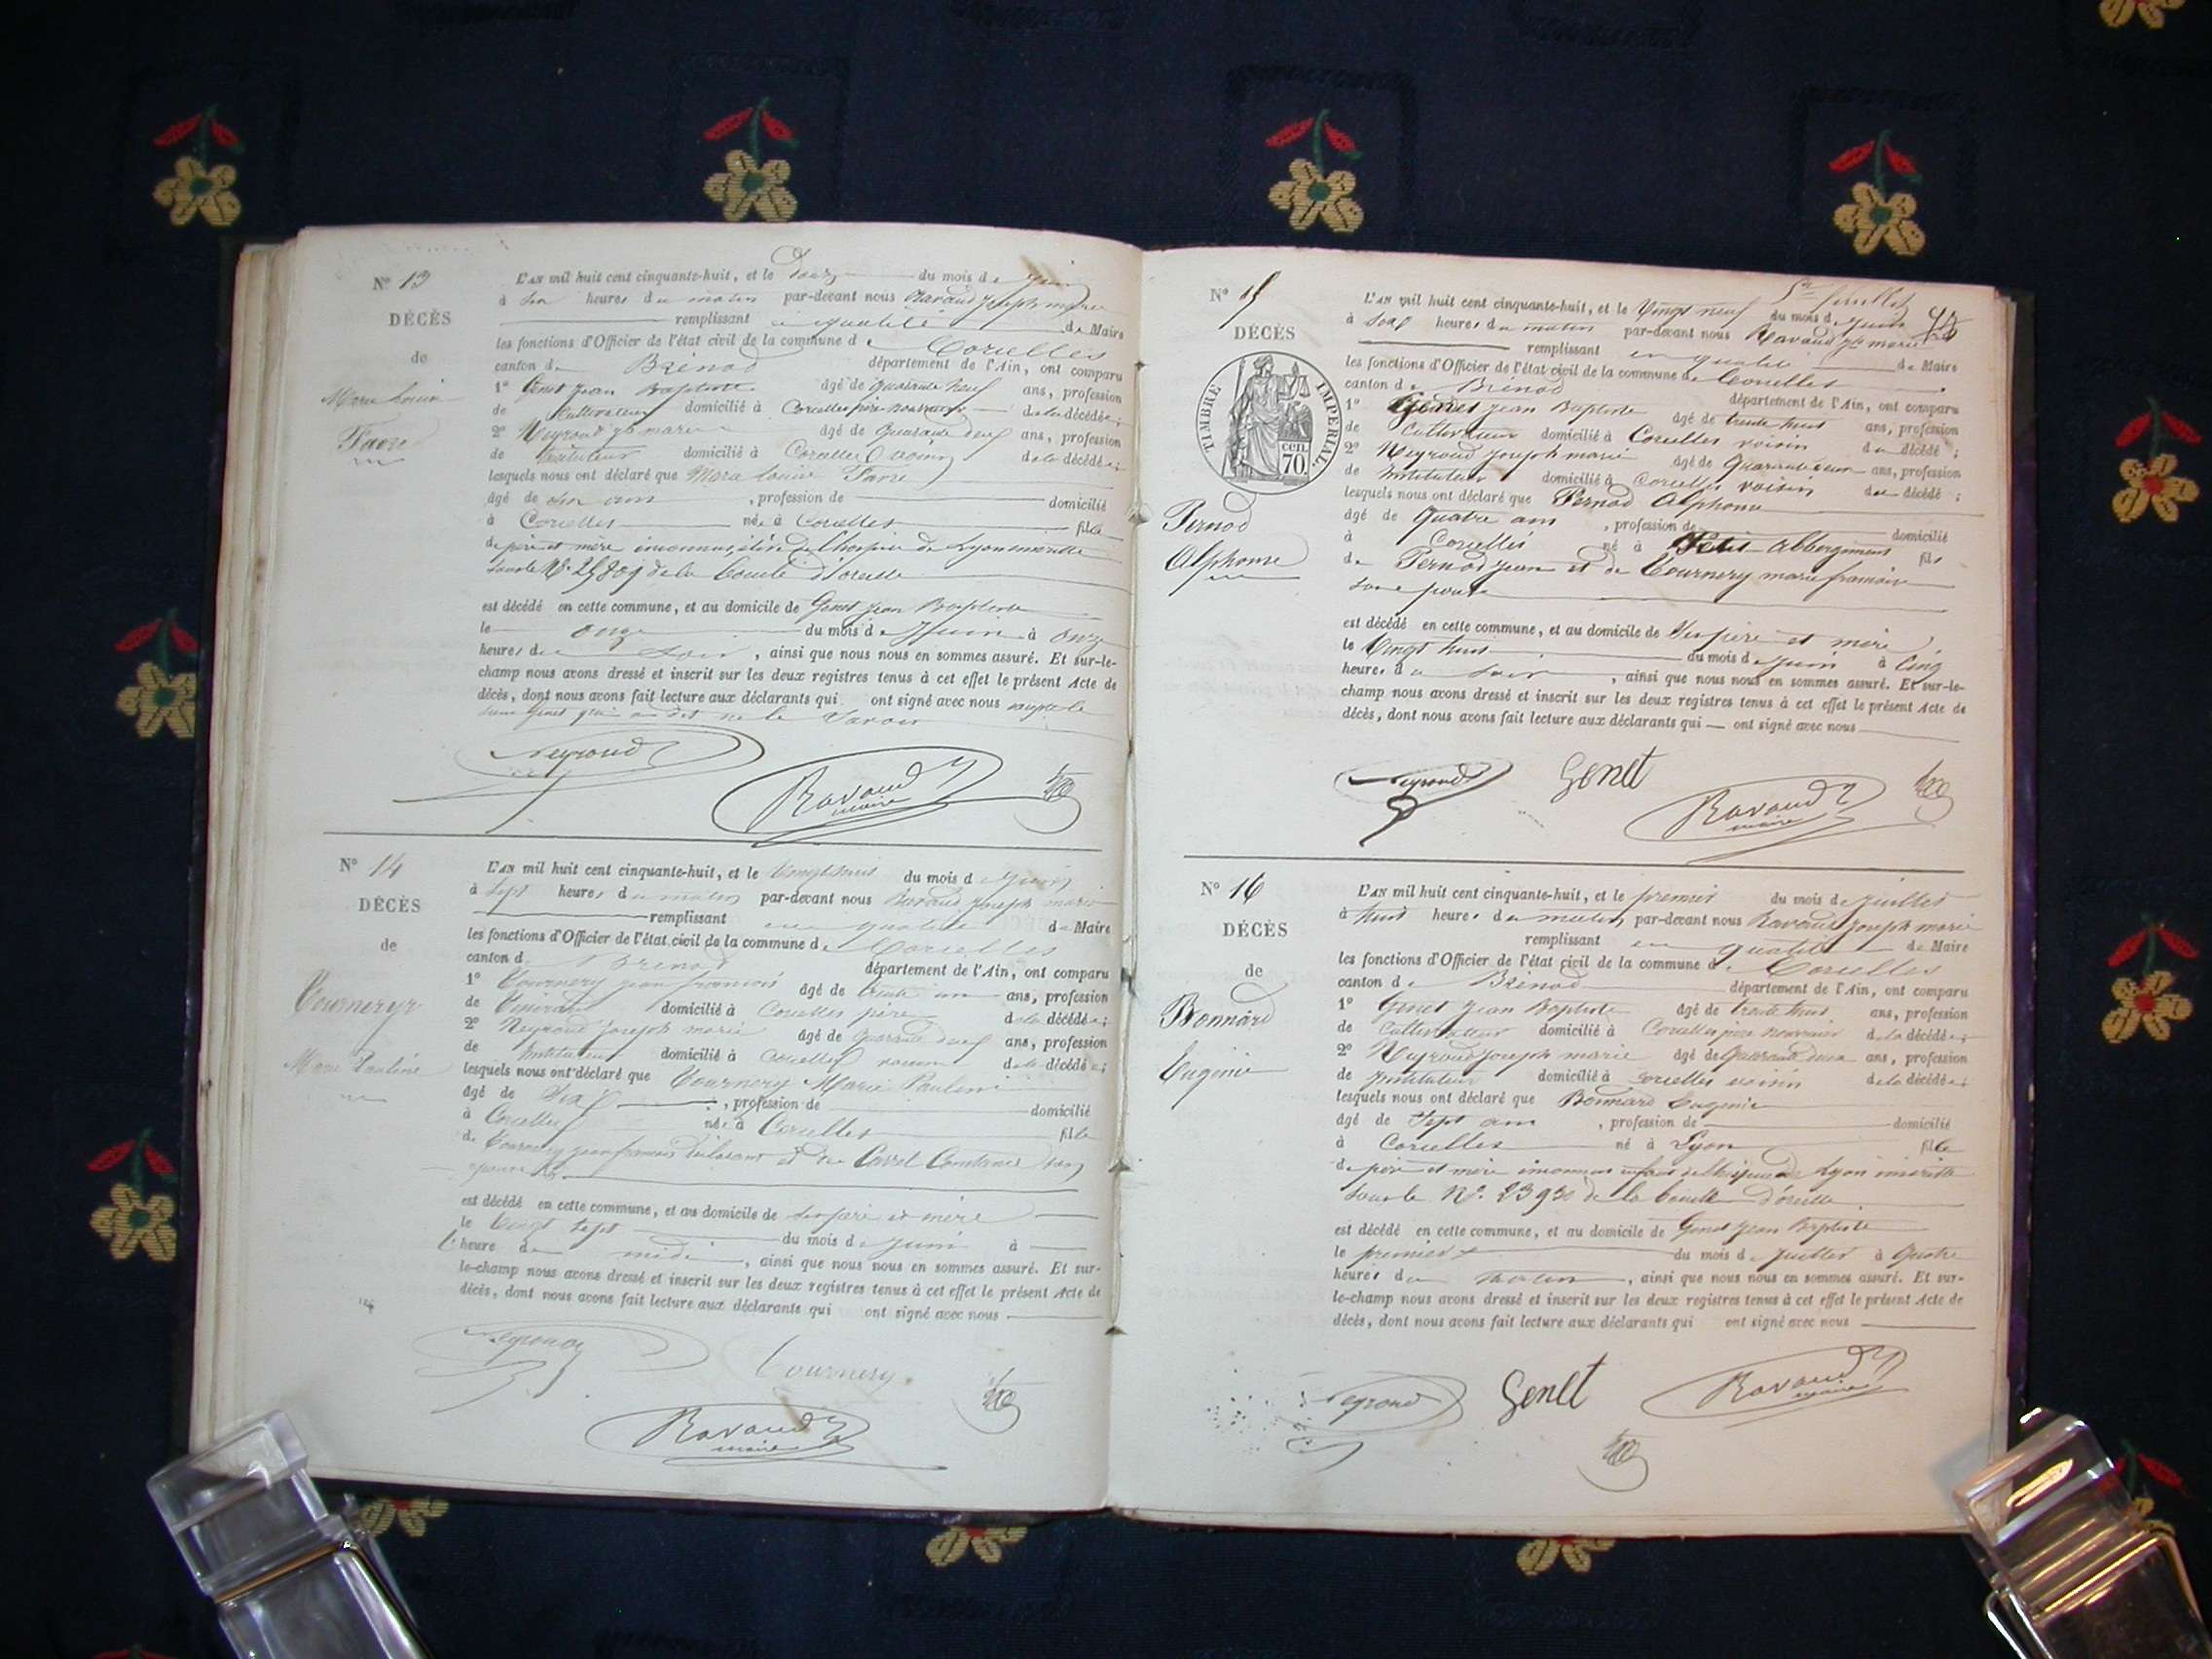 N° 13
DÉCÈS
de
Marie Louise
Favre
L'AN mil huit cent cinquante-huit, et le Douze du mois de juin
à six heures du matin par-devant nous Ravaud Joseph marie
remplissant en qualité de Maire
les fonctions d'Officier de l'état civil de la commune de Corcelles
canton de Brénod département de l'Ain, ont comparu
1° Genet Jean Baptiste âgé de quarante neuf ans, profession
de Cultivateur domicilié à Corcelles père nourricier de la décédée;
2° Neyroud jh marie âgé de quarante deux ans, profession
de Instituteur domicilié à Corcelles voisin de la décédée;
lesquels nous ont déclaré que Marie Louise Favre
âgé de six ans, profession de domicilié
à Corcelles née à Corcelles fille
de père et mère inconnus, élève de l'hospice de Lyon immatle
sous le N° de la boucle d'oreille
est décédé en cette commune, et au domicile de Genet Jean Baptiste
le onze du mois de Juin à onze
heures du soir, ainsi que nous nous en sommes assuré. Et sur-le-
champ nous avons dressé et inscrit sur les deux registres tenus à cet effet le présent Acte de
décès, dont nous avons fait lecture aux déclarants qui ont signé avec nous excepté le
sieur Genet qui a dit ne le savoir
Neyroud
Ravaud
maire
N° 14
DÉCÈS
de
Tournery
Marie Pauline
L'AN mil huit cent cinquante-huit, et le vingt huit du mois de Juin
à sept heures du matin par-devant nous Ravaud Joseph marie
remplissant en qualité de Maire
les fonctions d'Officier de l'état civil de la commune de Corcelles
canton de Brénod département de l'Ain, ont comparu
1° Tournery jean francois âgé de trente un ans, profession
de domicilié à Corcelles père de la décédée;
2° Neyroud Joseph marie âgé de quarante deux ans, profession
de Instituteur domicilié à Corcelles voisin de la décédée;
lesquels nous ont déclaré que Tournery Marie Pauline
âgé de , profession de domicilié
à Corcelles née à Corcelles fille
de Tournery jean francois déclarant et de Constance son
épouse
est décédé en cette commune, et au domicile de ses père et mère
le vingt sept du mois de juin à
heure de midi, ainsi que nous nous en sommes assuré. Et sur-
le-champ nous avons dressé et inscrit sur les deux registres tenus à cet effet le présent Acte de
décès, dont nous avons fait lecture aux déclarants qui ont signé avec nous
Neyroud
Tournery
Ravaud
maire
N° 15
DÉCÈS
TIMBRE IMPÉRIAL
cen.
70.
Pernod
Alphonse
5me feuillet
L'AN mil huit cent cinquante-huit, et le vingt neuf du mois de Juin
à sept heures du matin par-devant nous Ravaud jh marie
remplissant en qualité de Maire
les fonctions d'Officier de l'état civil de la commune de Corcelles
canton de Brénod département de l'Ain, ont comparu
1° Genet Jean Baptiste âgé de trente huit ans, profession
de Cultivateur domicilié à Corcelles voisin du décédé;
2° Neyroud joseph marie âgé de quarante deux ans, profession
de Instituteur domicilié à Corcelles voisin du décédé;
lesquels nous ont déclaré que Pernod Alphonse
âgé de quatre ans, profession de domicilié
à Corcelles né à Petit-Abbergement fils
de Pernod jean et de Tournery marie francoise
son épouse
est décédé en cette commune, et au domicile de ses père et mère
le vingt huit du mois de juin à cinq
heures du soir, ainsi que nous nous en sommes assuré. Et sur-le-
champ nous avons dressé et inscrit sur les deux registres tenus à cet effet le présent Acte de
décès, dont nous avons fait lecture aux déclarants qui ont signé avec nous
Neyroud
Genet
Ravaud
maire
N° 16
DÉCÈS
de
Bonnard
Eugénie
L'AN mil huit cent cinquante-huit, et le premier du mois de juillet
à huit heures du matin, par-devant nous Ravaud joseph marie
remplissant en qualité de Maire
les fonctions d'Officier de l'état civil de la commune de Corcelles
canton de Brénod département de l'Ain, ont comparu
1° Genet Jean Baptiste âgé de trente huit ans, profession
de Cultivateur domicilié à Corcelles père nourricier de la décédée;
2° Neyroud joseph marie âgé de quarante deux ans, profession
de Instituteur domicilié à Corcelles voisin de la décédée;
lesquels nous ont déclaré que Bonnard Eugénie
âgé de sept ans, profession de domicilié
à Corcelles né à Lyon fille
de père et mère inconnus enfant de l'hospice de Lyon inscrite
sous le N° 23930 de la boucle d'oreille
est décédé en cette commune, et au domicile de Genet Jean Baptiste
le premier du mois de juillet à quatre
heures du matin, ainsi que nous nous en sommes assuré. Et sur-
le-champ nous avons dressé et inscrit sur les deux registres tenus à cet effet le présent Acte de
décès, dont nous avons fait lecture aux déclarants qui ont signé avec nous
Neyroud
Genet
Ravaud
maire